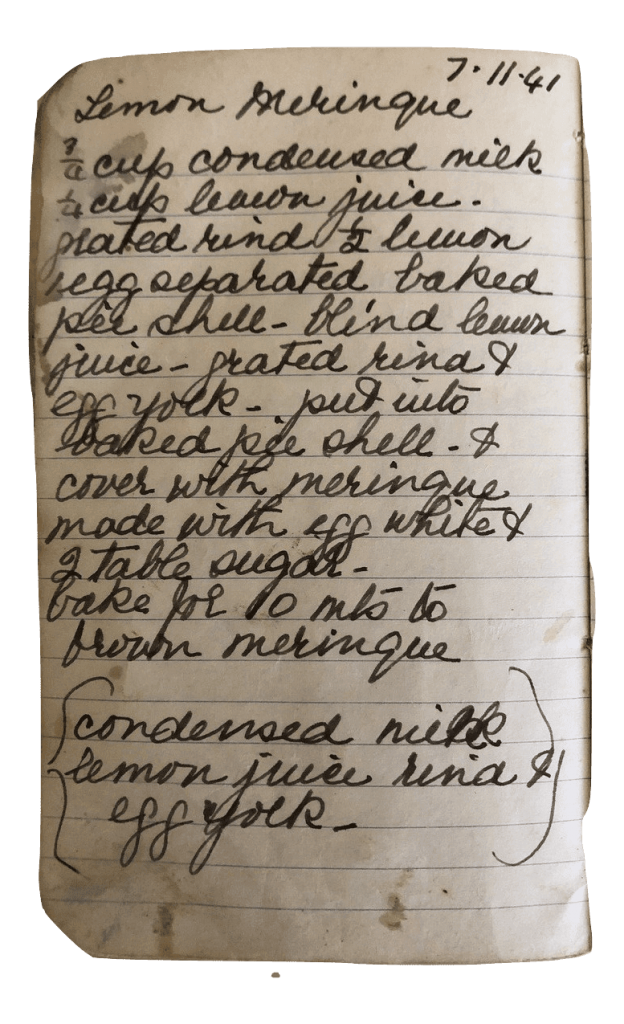 7.11.41
Lemon Meringue
3/4 cup condensed milk
1/4 cup lemon juice.
grated rind 1/2 lemon
1 egg separated baked
pie shell - blind lemon
juice - grated rind &
egg yolk - put into
baked pie shell - &
cover with meringue
made with egg white &
2 table sugar -
bake for 10 mts to
brown meringue
(condensed milk
lemon juice rind &
egg yolk -)